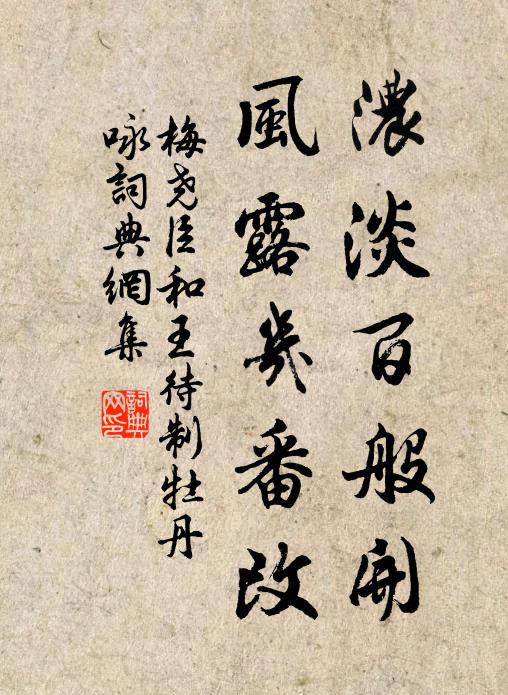 濃淡百般開
風露幾番改
梅堯臣和王待制牡丹
咏詞典網集
詞典
网印